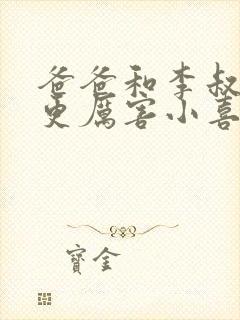 爸爸和李叔
更厲害小喜
寶金